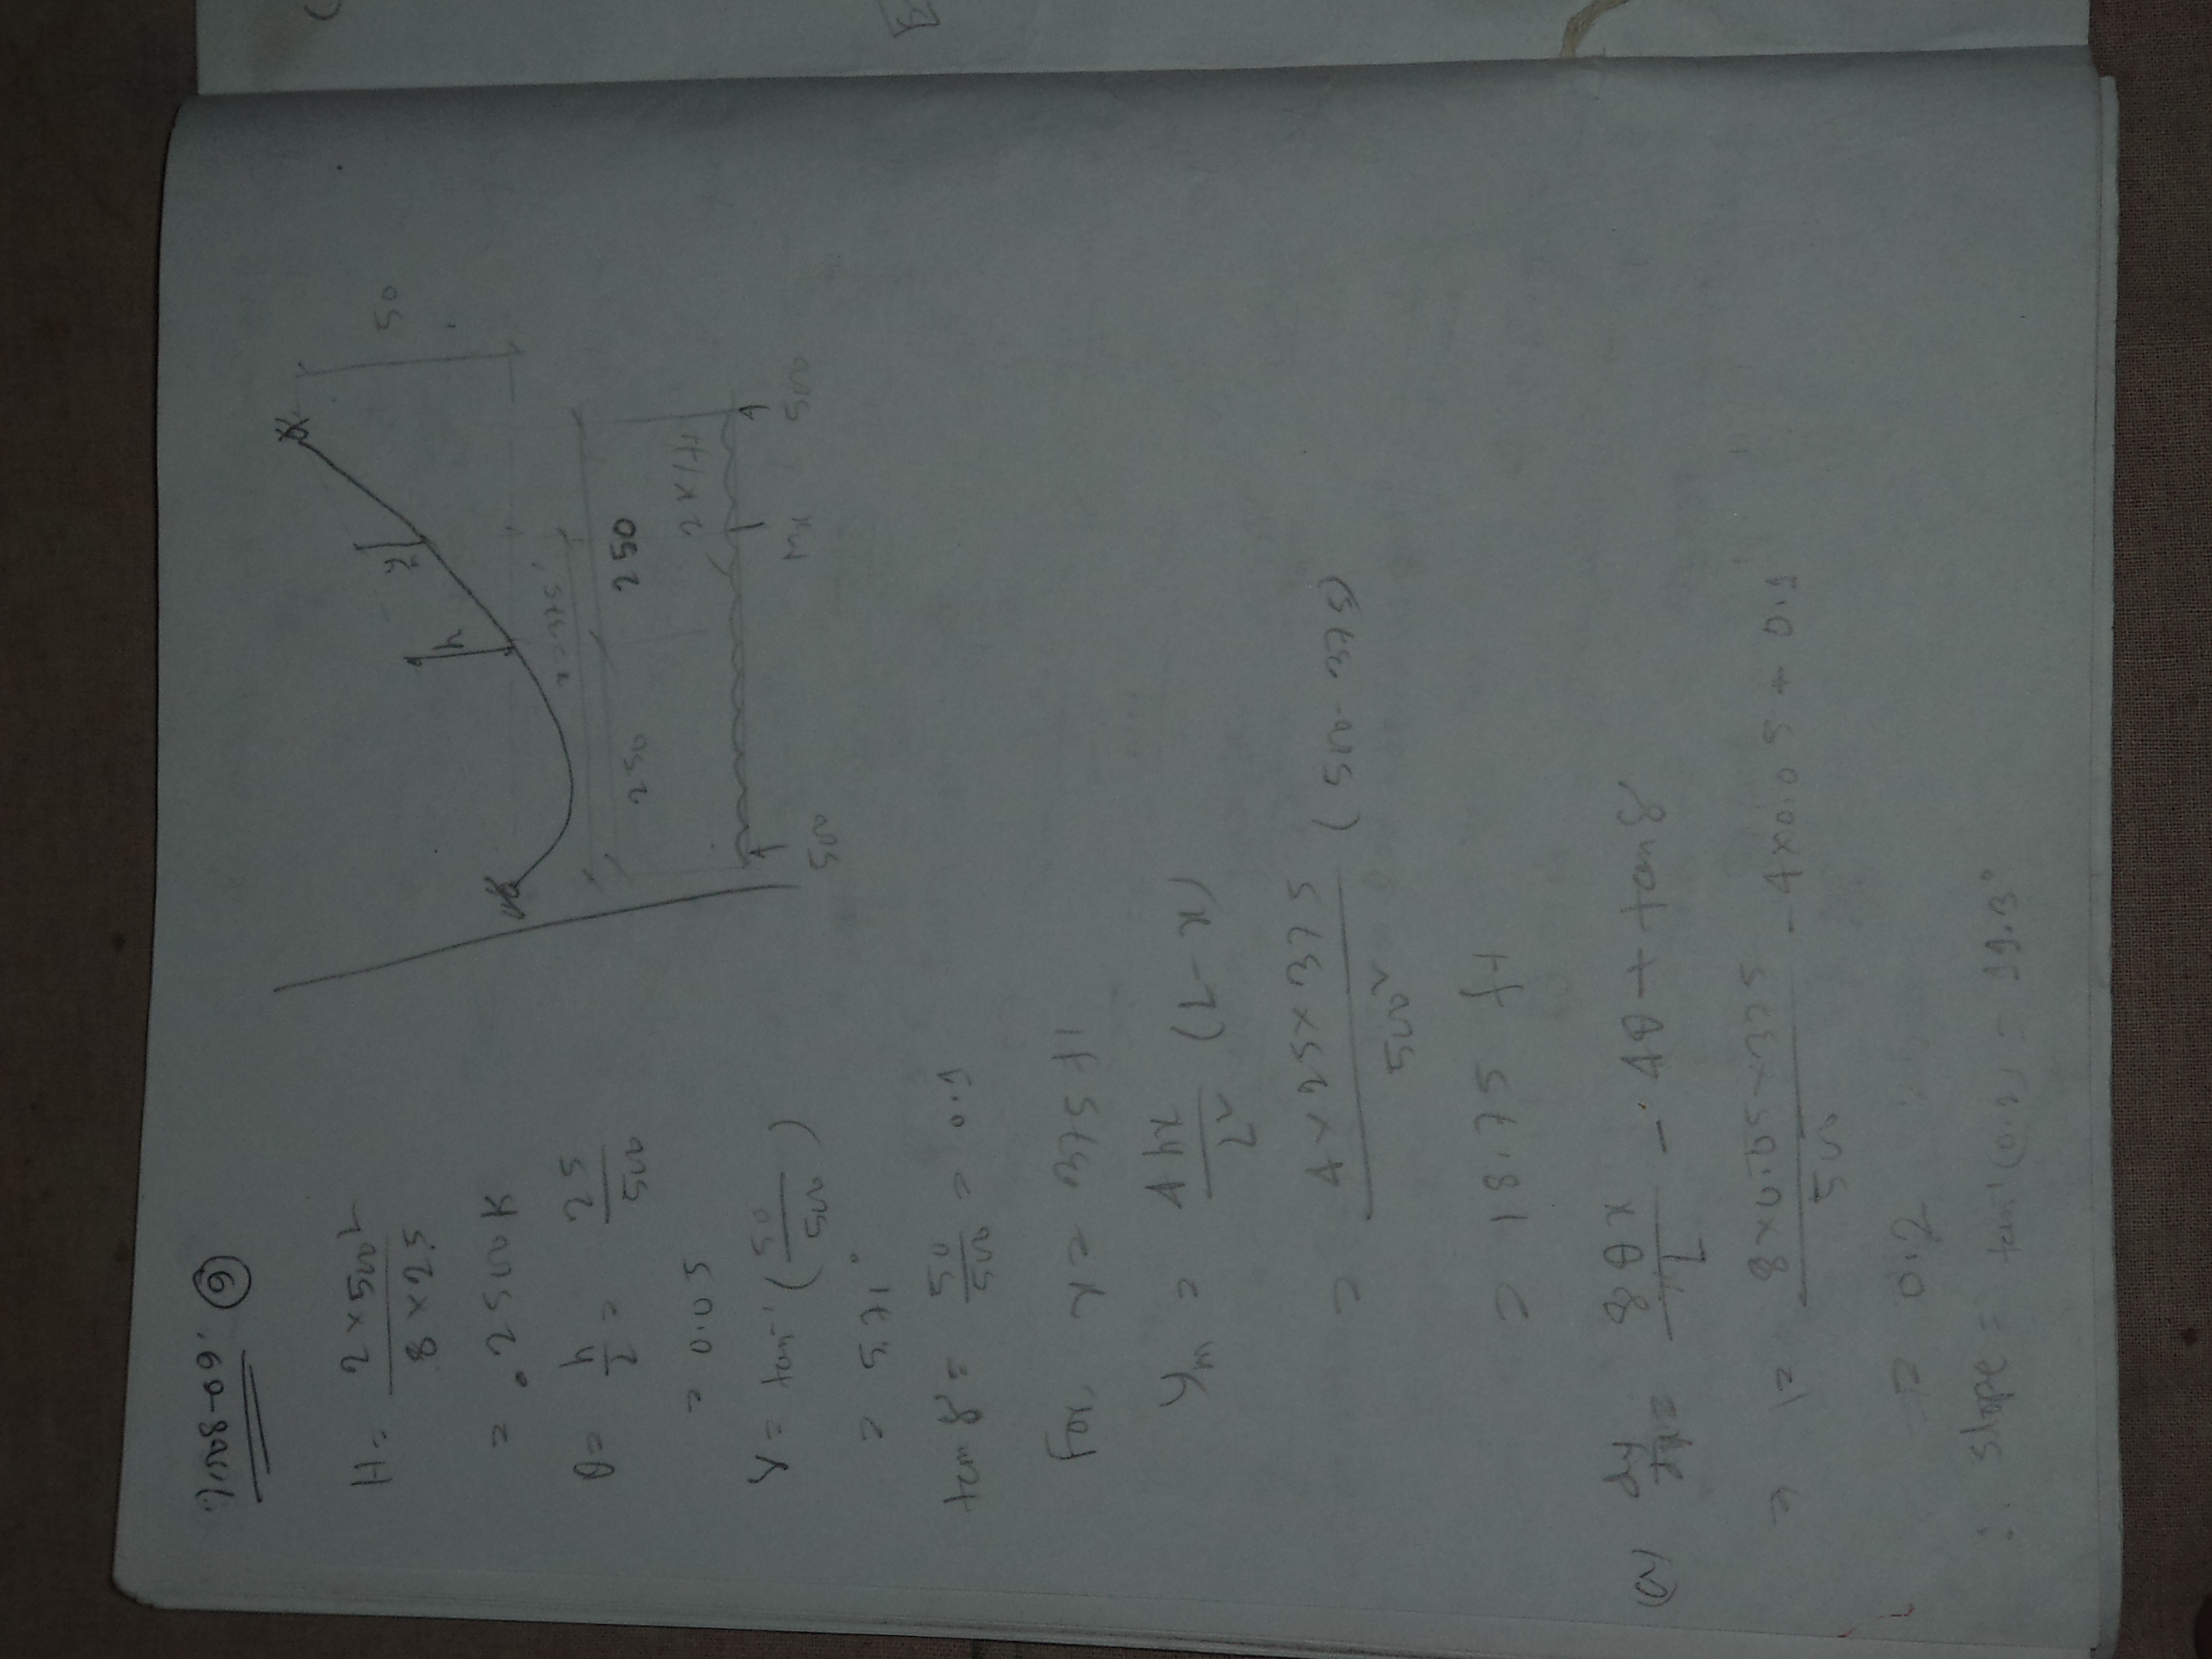 2008-09. ⑥
H = 2 × 500² / 8 × 25
= 2500 K
θ = h/L = 25/500
= 0.05
γ = tan⁻¹ (50/500)
= 5.71°
tan γ = 50/500 = 0.1
For, x = 375 ft
yₘ = 4hx/L² (L - x)
= 4 × 25 × 375 / 500² (500 - 375)
= 18.75 ft
(a) dy/dx = 8θx/L - 4θ + tan γ
⇒ 1 = 8 × 0.05 × 375 / 500 - 4 × 0.05 + 0.1
= 0.2
∴ slope = tan⁻¹ (0.2) = 11.3°
50
h
x = 375'
250
250
2 K/ft
500
m
500